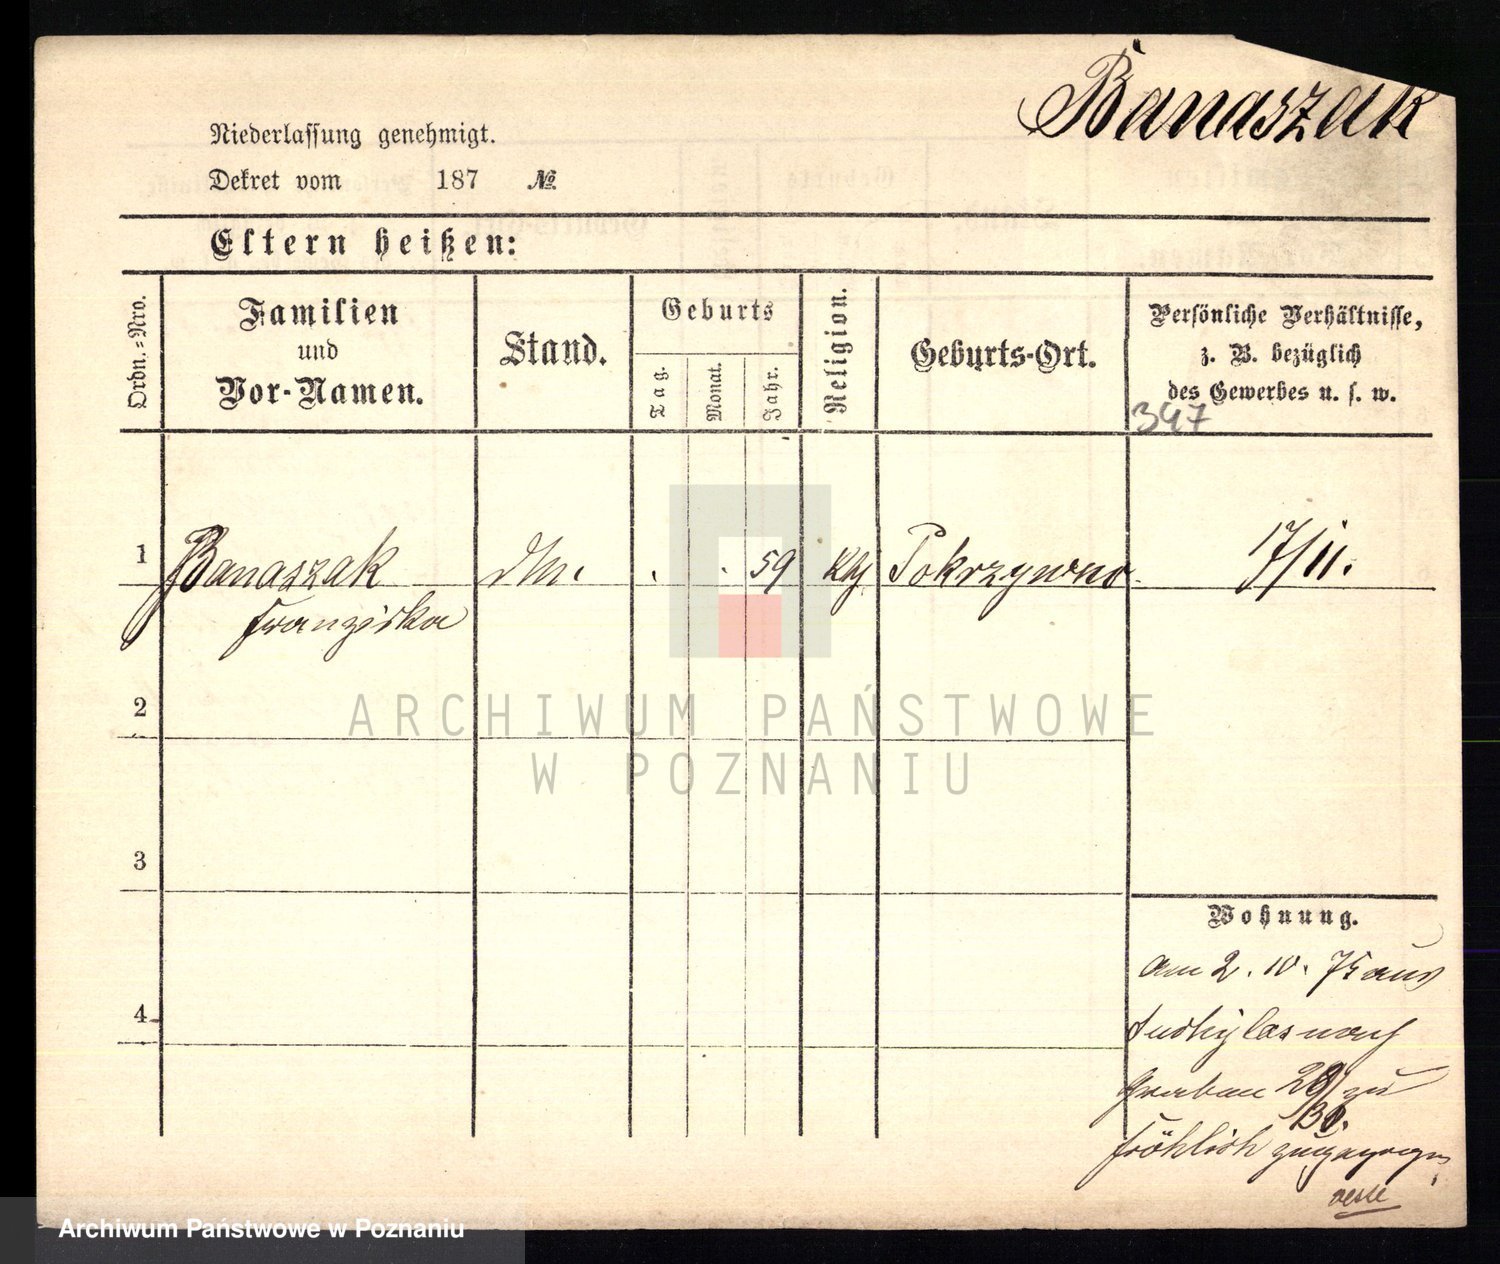 Banaszak
Niederlassung genehmigt.
Dekret vom 187 №
Eltern heißen:
Ordn.=Nro.
Familien
und
Vor-Namen.
Stand.
Geburts
Tag.
Monat.
Jahr.
Religion.
Geburts-Ort.
Persönliche Verhältnisse,
z. B. bezüglich
des Gewerbes u. s. w.
347
1 Banaszak . . 59 Kth Pokrzywno 17/11.
Franziska
2
3
4
ARCHIWUM PAŃSTWOWE
W POZNANIU
Wohnung.
am 2. 10. 75 aus
nach
Graben 28/ zu
30.
Fröhlich zugezogen
Archiwum Państwowe w Poznaniu